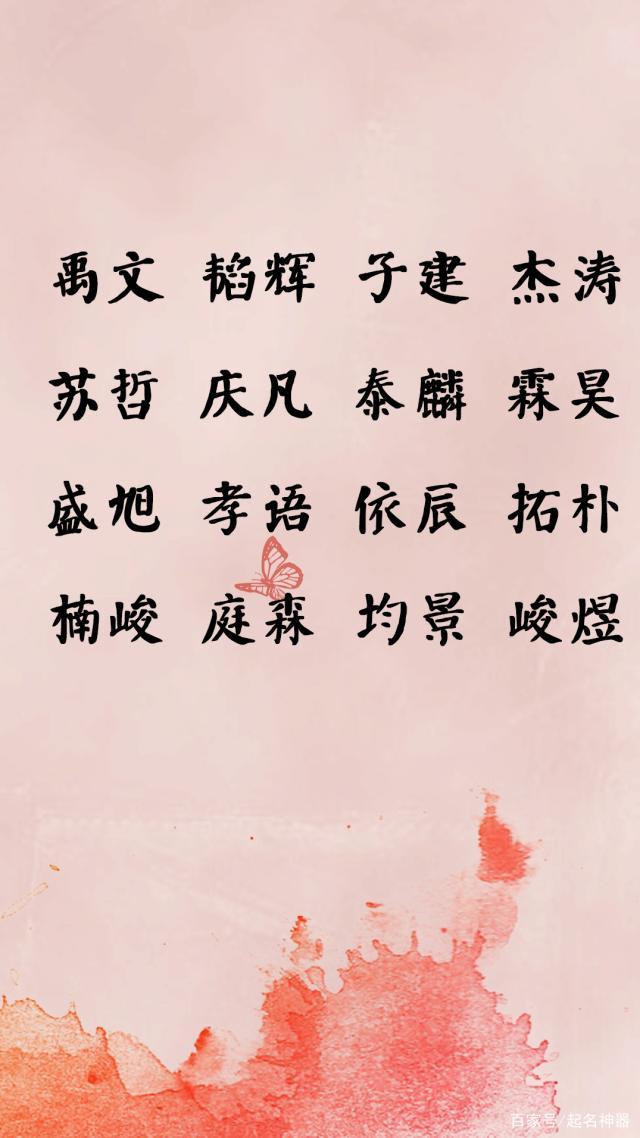 禹文 韬辉 子建 杰涛
苏哲 庆凡 泰麟 霖昊
盛旭 孝语 依辰 拓朴
楠峻 庭森 均景 峻煜
百家号/起名神器